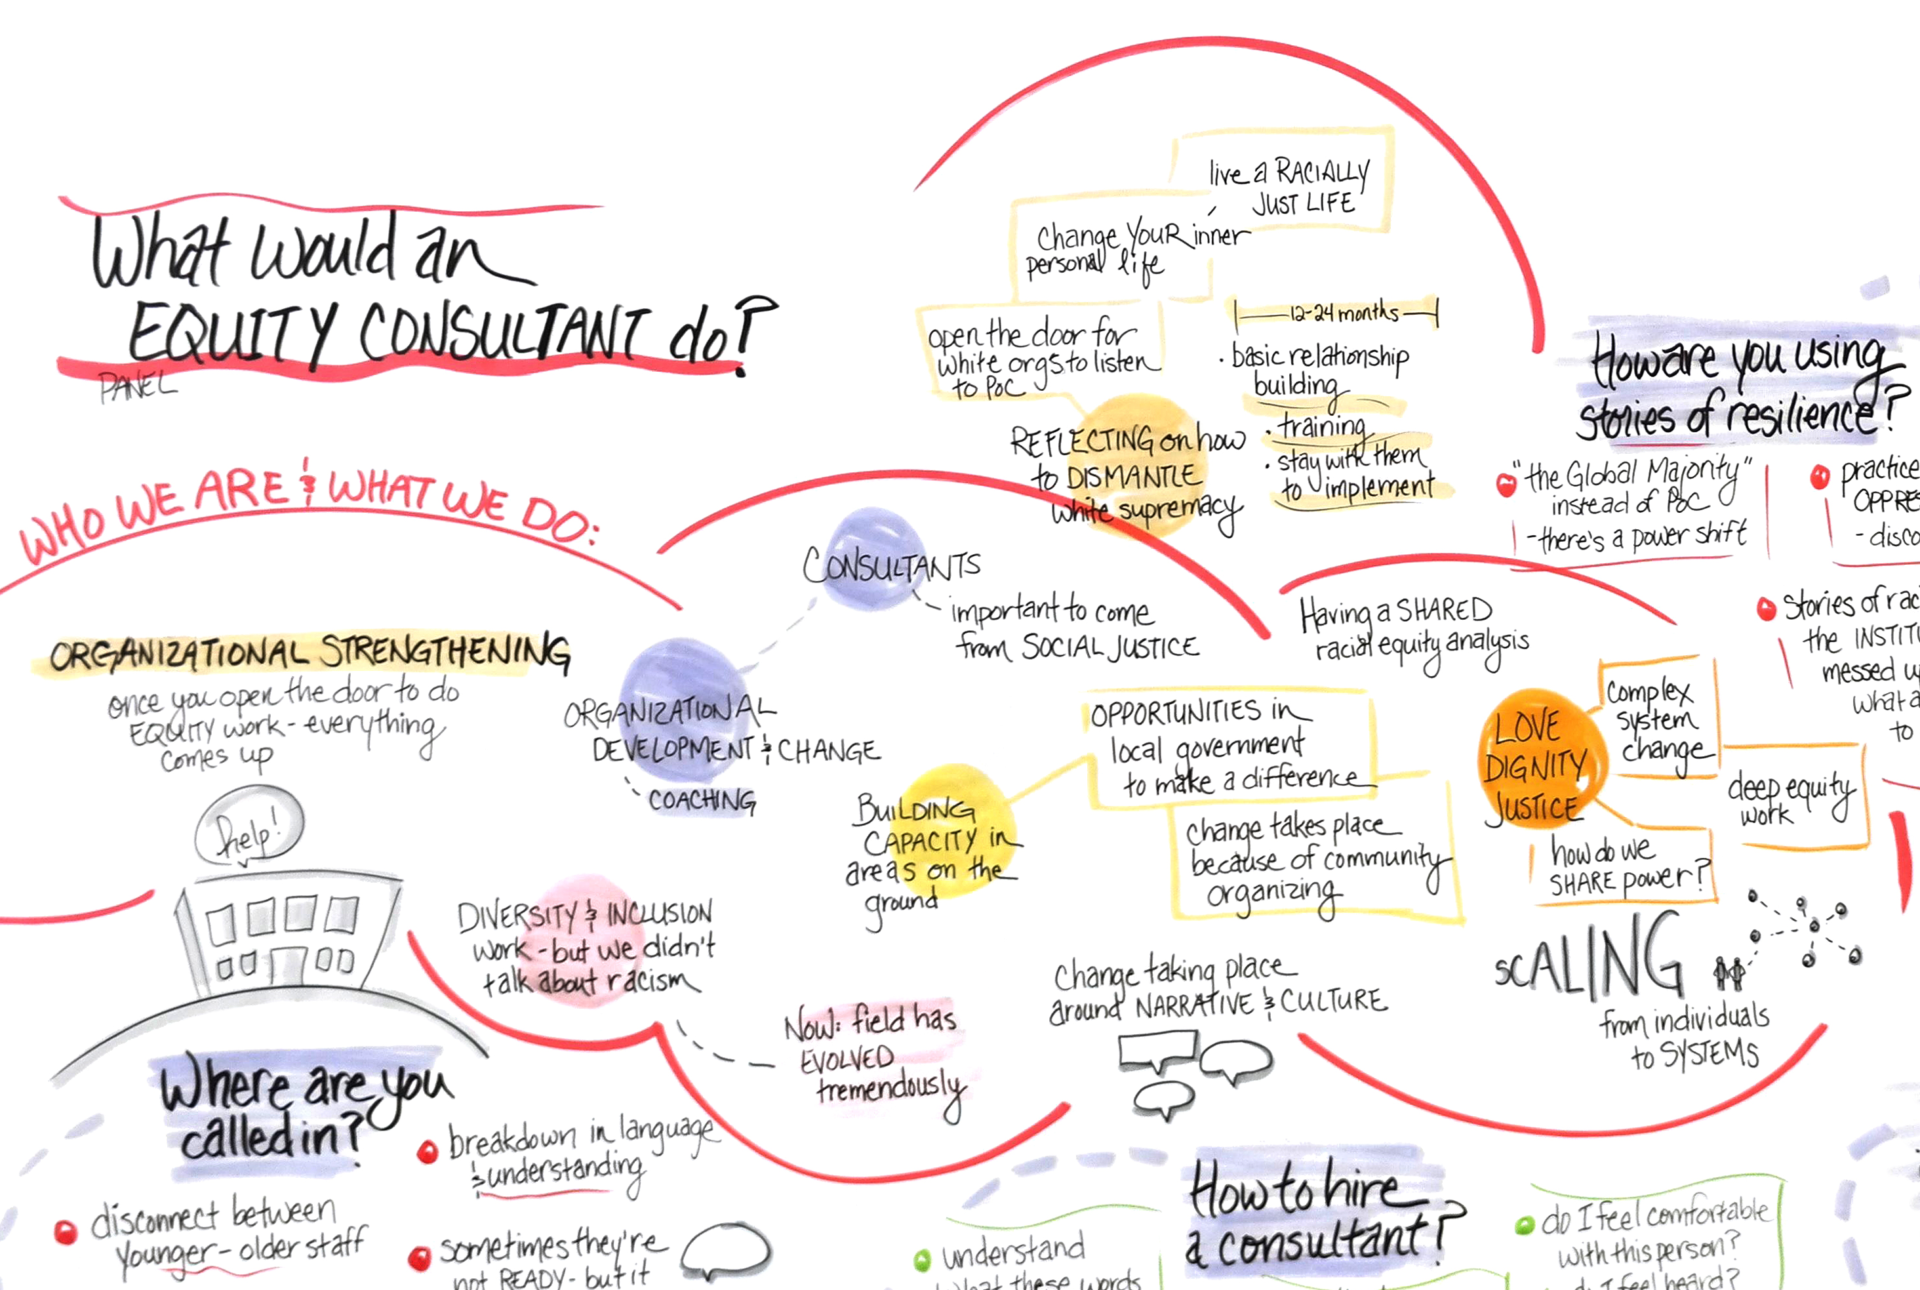 What would an
EQUITY CONSULTANT do?
PANEL
WHO WE ARE & WHAT WE DO:
ORGANIZATIONAL STRENGTHENING
once you open the door to do
EQUITY work - everything
comes up
help!
ORGANIZATIONAL
DEVELOPMENT & CHANGE
COACHING
CONSULTANTS
important to come
from SOCIAL JUSTICE
DIVERSITY & INCLUSION
work - but we didn't
talk about racism
Now: field has
EVOLVED
tremendously
live a RACIALLY
JUST LIFE
change YOUR inner
personal life
open the door for
white orgs to listen
to PoC
REFLECTING on how
to DISMANTLE
white supremacy
12-24 months
• basic relationship
building
• training
• stay with them
to implement
BUILDING
CAPACITY in
areas on the
ground
OPPORTUNITIES in
local government
to make a difference
change takes place
because of community
organizing
Change taking place
around NARRATIVE & CULTURE
Having a SHARED
racial equity analysis
LOVE
DIGNITY
JUSTICE
complex
system
change
deep equity
work
how do we
SHARE power?
SCALING
from individuals
to SYSTEMS
How are you using
stories of resilience?
"the Global Majority"
instead of PoC
- there's a power shift
practice
OPPRE
- disco
Stories of rac
the INSTITU
messed u
what a
to
Where are you
called in?
disconnect between
younger - older staff
breakdown in language
& understanding
sometimes they're
not READY - but it
How to hire
a consultant?
understand
what these words
do I feel comfortable
with this person?
do I feel heard?